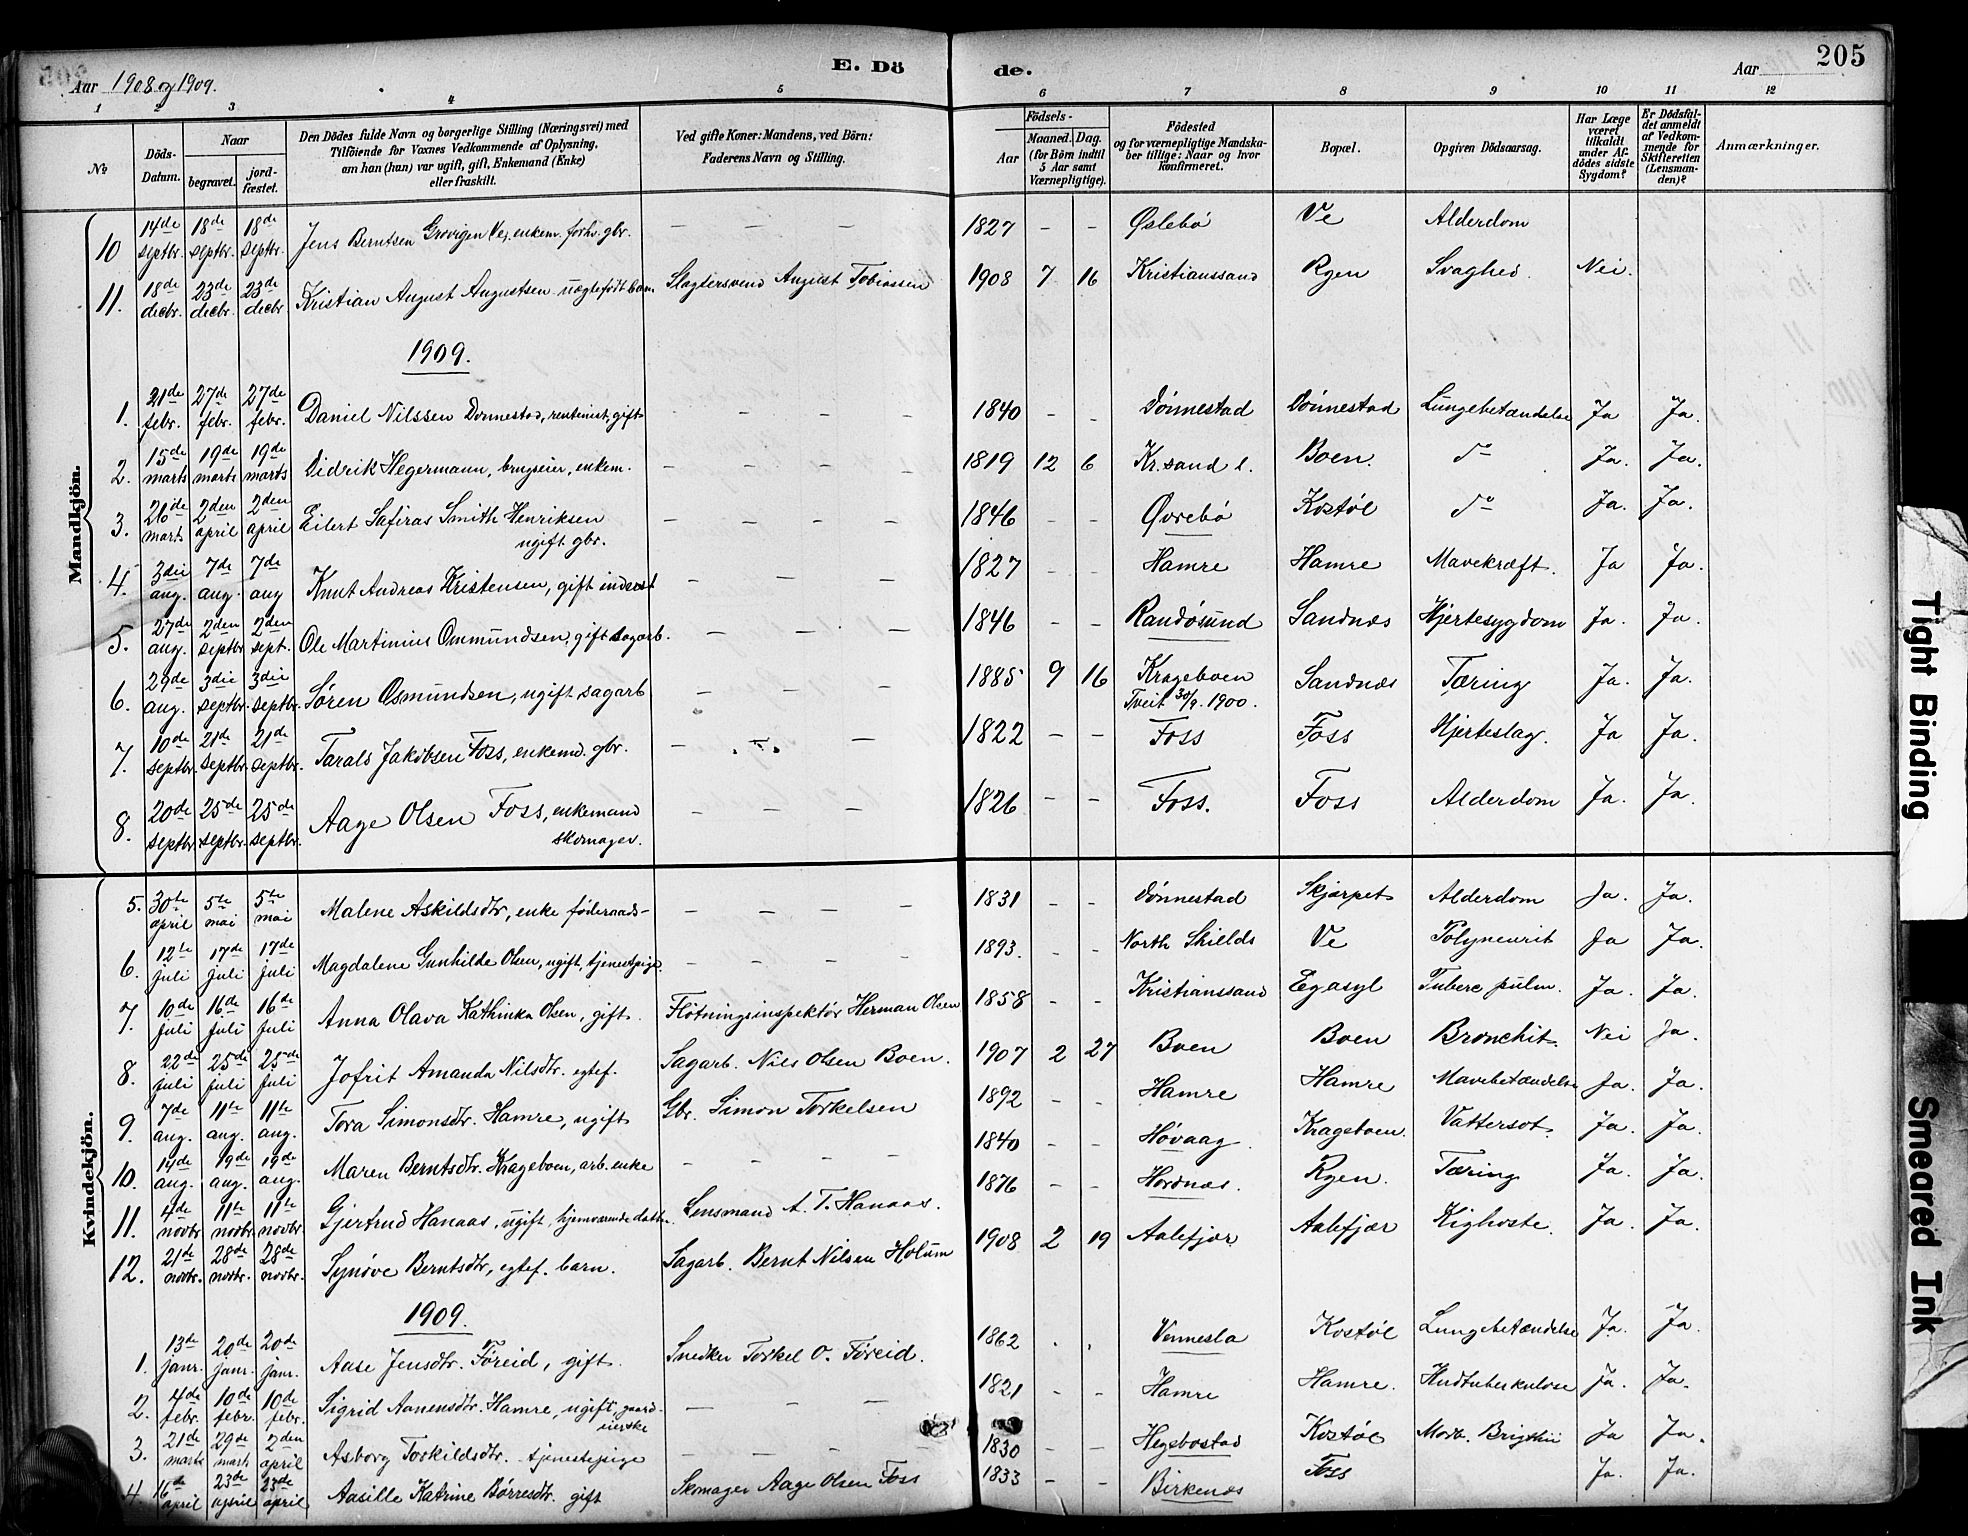 205
Aar 1908 og 1909.
E. Dö
de.
Aar
1 2 3 4 5 6 7 8 9 10 11 12
№
Döds-Datum.
Naar
begravet.
jord-fæstet.
Den Dödes fulde Navn og borgerlige Stilling (Næringsvei) med
Tilföiende for Voxnes Vedkommende af Oplysning,
om han (hun) var ugift, gift, Enkemand (Enke)
eller fraskilt.
Ved gifte Koner: Mandens, ved Börn:
Faderens Navn og Stilling.
Födsels-
Aar
Maaned. Dag.
(for Börn indtil
5 Aar samt
Værnepligtige).
Födested
og for værnepligtige Mandska-
ber tillige: Naar og hvor
konfirmeret.
Bopæl.
Opgiven Dödsaarsag.
Har Læge
været
tilkaldt
under Af-
dödes sidste
Sygdom?
Er Dödsfal-
det anmeldt
af Vedkom-
mende for
Skifteretten
(Lensman-
den)?
Anmærkninger.
Mandkjön.
10 14de septbr. 18de septbr. 18de septbr. Jens Berntsen Grovigen Ve, enkem. forhv. gbr. — — — — 1827 - - Øslebö Ve Alderdom
11. 18de decbr. 23de decbr. 23de decbr Kristian August Augustsen uægtefödt barn Slagtersvend August Tobiassen 1908 7 16 Kristianssand Rgen Svaghed. Nei.
1909.
1. 21de febr. 27de febr. 27de febr. Daniel Nilssen Dönnestad, rentenist, gift — — — — 1840 - - Dönnestad Dönnestad Lungebetændelse Ja Ja.
2. 15de marts 19de marts 19de marts Didrik Hegermann, brugseier, enkem. — — — — 1819 12 6 Kr.sand l. Boen. do Ja. Ja.
3. 26de marts 2den april 2den april Eilert Safiras Smith Henriksen
ugift gbr. — — — — 1846 - - Øvrebö Kostöl do Ja. Ja.
4. 3die aug. 7de aug. 7de aug Knut Andreas Kristensen, gift inderst — — — 1827 - - Hamre Hamre Mavekræft. Ja Ja.
5. 27de aug. 2den septbr 2den sept. Ole Martinius Ommundsen, gift sagarb. — — — 1846 - - Randösund Sandnæs Hjertesygdom Ja. Ja.
6. 29de aug. 3die septbr. 3die septbr. Sören Osmundsen, ugift sagarb — — — 1885 9 16 Krageboen
Tveit 30/9. 1900. Sandnæs Tæring Ja. Ja.
7. 10de septbr. 21de septbr. 21de septbr. Tarals Jakobsen Foss, enkemd. gbr. — — — 1822 - - Foss Foss Hjerteslag. Ja Ja.
8. 20de septbr 25de septbr. 25de septbr. Aage Olsen Foss, enkemand
skomager. — — — 1826 - - Foss. Foss Alderdom Ja. Ja.
Kvindekjön.
5. 30te april 5te mai 5te mai Malene Askildsdtr, enke föderaads- — — — — 1831 - - Dönnestad Skjærpet Alderdom Ja. Ja.
6. 12te juli 17de juli 17de juli Magdalene Gunhilde Olsen, ugift, tjenestpige. — — — — 1893. - - North Shields Ve Polyneurit Ja Ja.
7. 10de juli 16de juli 16de juli Anna Olava Kathinka Olsen, gift. Flötningsinspektör Herman Olsen 1858 - - Kristianssand Egasyl Tuberc pulm. Ja. Ja.
8. 22de juli 25de juli 25de juli Jofrit Amanda Nilsdtr. egtef. Sagarb. Nils Olsen Boen. 1907 2 27 Boen Boen Bronchit. Nei Ja.
9. 7de aug. 11te aug. 11te aug. Tora Simonsdtr. Hamre, ugift Gbr. Simon Torkelsen 1892 - - Hamre Hamre Mavebetændelse Ja. Ja.
10. 14de aug. 19de aug. 19de aug. Maren Berntsdtr. Krageboen, arb. enke — — — — 1840 - - Hövaag. Krageboen. Vattersot. Ja. Ja.
11. 4de novbr 11te novbr. 11te novbr. Gjertrud Hanaas, ugift, hjemværende datter. Lensmand A. T. Hanaas. 1876 - - Hordnæs. Rgen. Tæring Ja. Ja.
12. 21de novbr. 28de novbr. 28de novbr. Synöve Berntsdtr, egtef. barn. Sagarb. Bernt Nilsen Holum 1908 2 19 Aalefjær Aalefjær Kighoste. Ja. Ja.
1909.
1. 13de janr. 20de janr. 20de janr. Aase Jensdtr. Föreid, gift. Snedker Torkel O. Föreid. 1862 . . Vennesla Kostöl Lungebetændelse Ja. Ja.
2. 4de febr. 10de febr. 10de febr. Sigrid Aanensdtr. Hamre, ugift, gaard-
eierske — — — — 1821 - - Hamre Hamre. Hudtuberkulose Ja. Ja.
3. 21de marts 29de marts 2den april Asborg Torkildsdtr. tjenestepige — — — — 1830 - - Hegebostad Kostöl Morb. Brigthii Ja Ja.
4. 16de april 23de april 23de april Aasille Katrine Börresdtr. gift Skomager Aage Olsen Foss 1833 - - Birkenæs Foss Ja. Ja.
Tight Binding
Smeared Ink